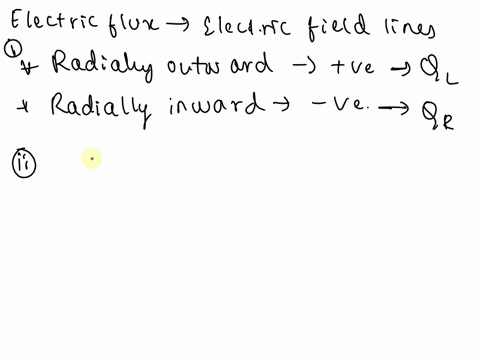 Electric flux → Electric field lines
(i) * Radially outward → +ve → Q_L
* Radially inward → -ve. → Q_R
(ii)